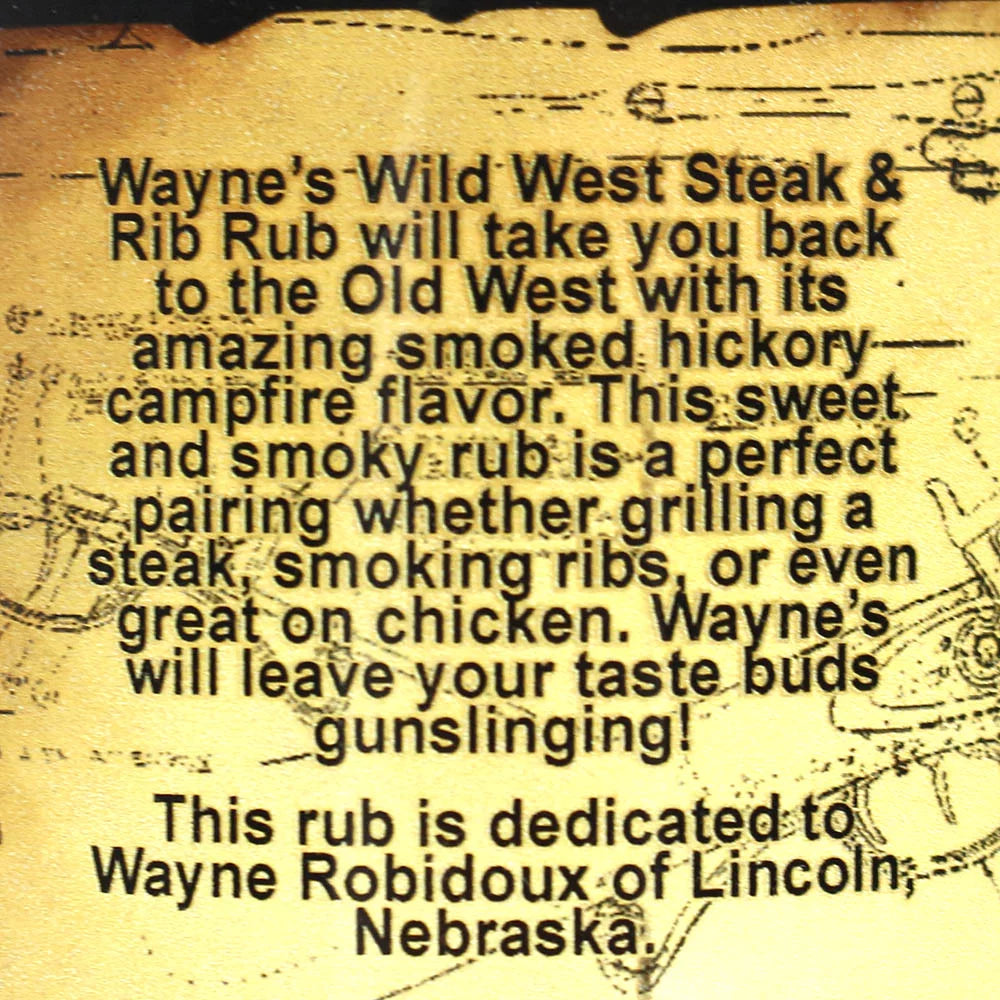 Wayne's Wild West Steak &
Rib Rub will take you back
to the Old West with its
amazing smoked hickory
campfire flavor. This sweet
and smoky rub is a perfect
pairing whether grilling a
steak, smoking ribs, or even
great on chicken. Wayne's
will leave your taste buds
gunslinging!
This rub is dedicated to
Wayne Robidoux of Lincoln,
Nebraska.